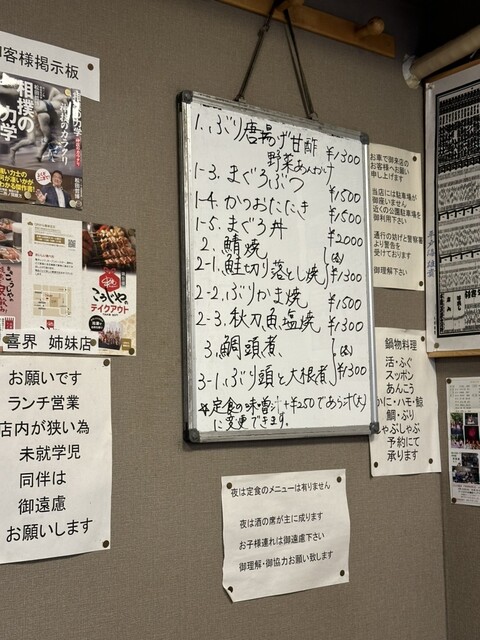 お客様掲示板
相撲の
力学
こうじや
テイクアウト
喜界 姉妹店
お願いです
ランチ営業
店内が狭い為
未就学児
同伴は
御遠慮
お願いします
1.ぶり唐揚げ甘酢
野菜あんかけ ¥1300
1-3.まぐろぶつ ¥1500
1-4.かつおたたき ¥1500
1-5.まぐろ丼 ¥2000
2.鯖焼
2-1.鮭切り落とし焼 ¥1300
2-2.ぶりかま焼 ¥1500
2-3.秋刀魚塩焼 ¥1300
3.鯛頭煮
3-1.ぶり頭と大根煮 ¥1300
☆定食の味噌汁+¥250であら汁(大)
に変更できます。
お車で御来店の
お客様へお願い
申し上げます
当店には駐車場が
御座いません
近くの公園駐車場を
御利用下さい
通行の妨げと警察署
より警告を
受けております
御理解下さい
鍋物料理
活・ふぐ
スッポン
あんこう
かに・ハモ・鯨
鯛・ぶり
しゃぶしゃぶ
予約にて
承ります
夜は定食のメニューは有りません
夜は酒の席が主に成ります
お子様連れは御遠慮下さい
御理解・御協力お願い致します